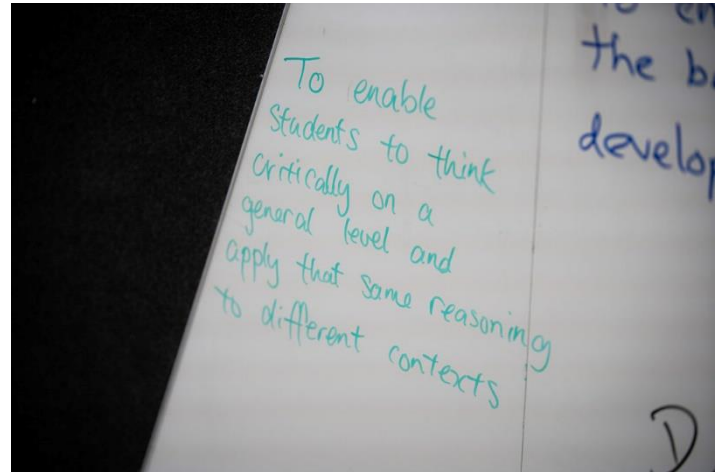 To enable
students to think
critically on a
general level and
apply that same reasoning
to different contexts
the
develop
D